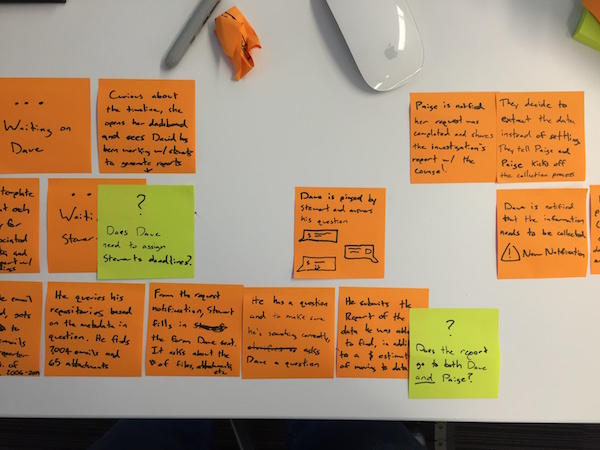 ...
Waiting on
Dave
Curious about
the timeline, she
opens her dashboard
and sees David has
been working w/
to generate reports
Paige is notified
her request was
completed and shares
the investigation's
report w/ the
counsel.
They decide to
extract the data
instead of settling.
They tell Paige and
Paige kicks off
the collection process
template
for
...
?
Does Dave
need to assign
Stewarts deadlines?
Dave is pinged by
Stewart and answers
his question
Dave is notified
that the information
needs to be collected.
! New Notification
email
He queries his
repositories based
on the metadata in
question. He finds
7004 emails and
65 attachments
From the request
notification, Stewart
fills in
the form Dave sent.
It asks about the
# of files, attachments,
etc.
He has a question
and to make sure
he's something correctly,
asks
Dave a question
He submits the
Report of the
data he was able
to find, in
to a $
of moving to data
?
Does the report
go to both Dave
and Paige?